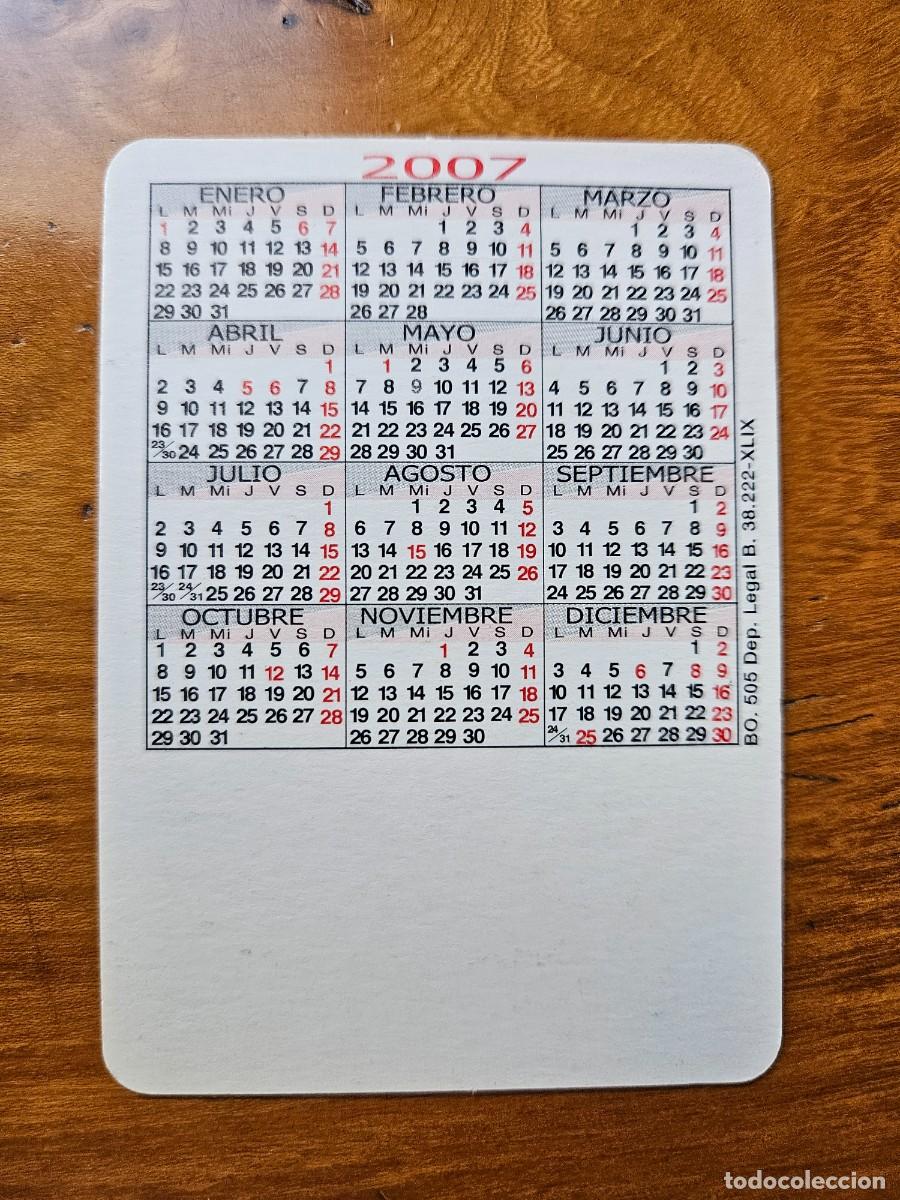 2007
ENERO
L M Mi J V S D
1 2 3 4 5 6 7
8 9 10 11 12 13 14
15 16 17 18 19 20 21
22 23 24 25 26 27 28
29 30 31
FEBRERO
L M Mi J V S D
1 2 3 4
5 6 7 8 9 10 11
12 13 14 15 16 17 18
19 20 21 22 23 24 25
26 27 28
MARZO
L M Mi J V S D
1 2 3 4
5 6 7 8 9 10 11
12 13 14 15 16 17 18
19 20 21 22 23 24 25
26 27 28 29 30 31
ABRIL
L M Mi J V S D
1
2 3 4 5 6 7 8
9 10 11 12 13 14 15
16 17 18 19 20 21 22
23/30 24 25 26 27 28 29
MAYO
L M Mi J V S D
1 2 3 4 5 6
7 8 9 10 11 12 13
14 15 16 17 18 19 20
21 22 23 24 25 26 27
28 29 30 31
JUNIO
L M Mi J V S D
1 2 3
4 5 6 7 8 9 10
11 12 13 14 15 16 17
18 19 20 21 22 23 24
25 26 27 28 29 30
JULIO
L M Mi J V S D
1
2 3 4 5 6 7 8
9 10 11 12 13 14 15
16 17 18 19 20 21 22
23/30 24/31 25 26 27 28 29
AGOSTO
L M Mi J V S D
1 2 3 4 5
6 7 8 9 10 11 12
13 14 15 16 17 18 19
20 21 22 23 24 25 26
27 28 29 30 31
SEPTIEMBRE
L M Mi J V S D
1 2
3 4 5 6 7 8 9
10 11 12 13 14 15 16
17 18 19 20 21 22 23
24 25 26 27 28 29 30
OCTUBRE
L M Mi J V S D
1 2 3 4 5 6 7
8 9 10 11 12 13 14
15 16 17 18 19 20 21
22 23 24 25 26 27 28
29 30 31
NOVIEMBRE
L M Mi J V S D
1 2 3 4
5 6 7 8 9 10 11
12 13 14 15 16 17 18
19 20 21 22 23 24 25
26 27 28 29 30
DICIEMBRE
L M Mi J V S D
1 2
3 4 5 6 7 8 9
10 11 12 13 14 15 16
17 18 19 20 21 22 23
24/31 25 26 27 28 29 30
BO. 505 Dep. Legal B. 38.222-XLIX
todocoleccion